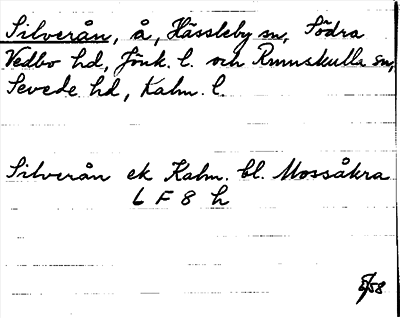 Silverån, å, Hässleby sn, Södra
Vedbo hd, Jönk. l. och Rumskulla sn,
Sevede hd, Kalm. l.
Silverån ek Kalm. bl. Mossåkra
6 F 8 h